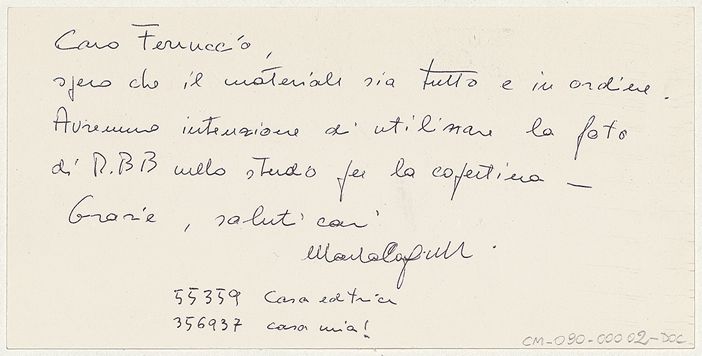 Caro Ferruccio,
spero che il materiale sia tutto e in ordine.
Avremmo intenzione di utilizzare la foto
di R.BB nello studio per la copertina —
Grazie, saluti cari
55359 Casa editrice
356937 casa mia!
CM-090-00002-DOC